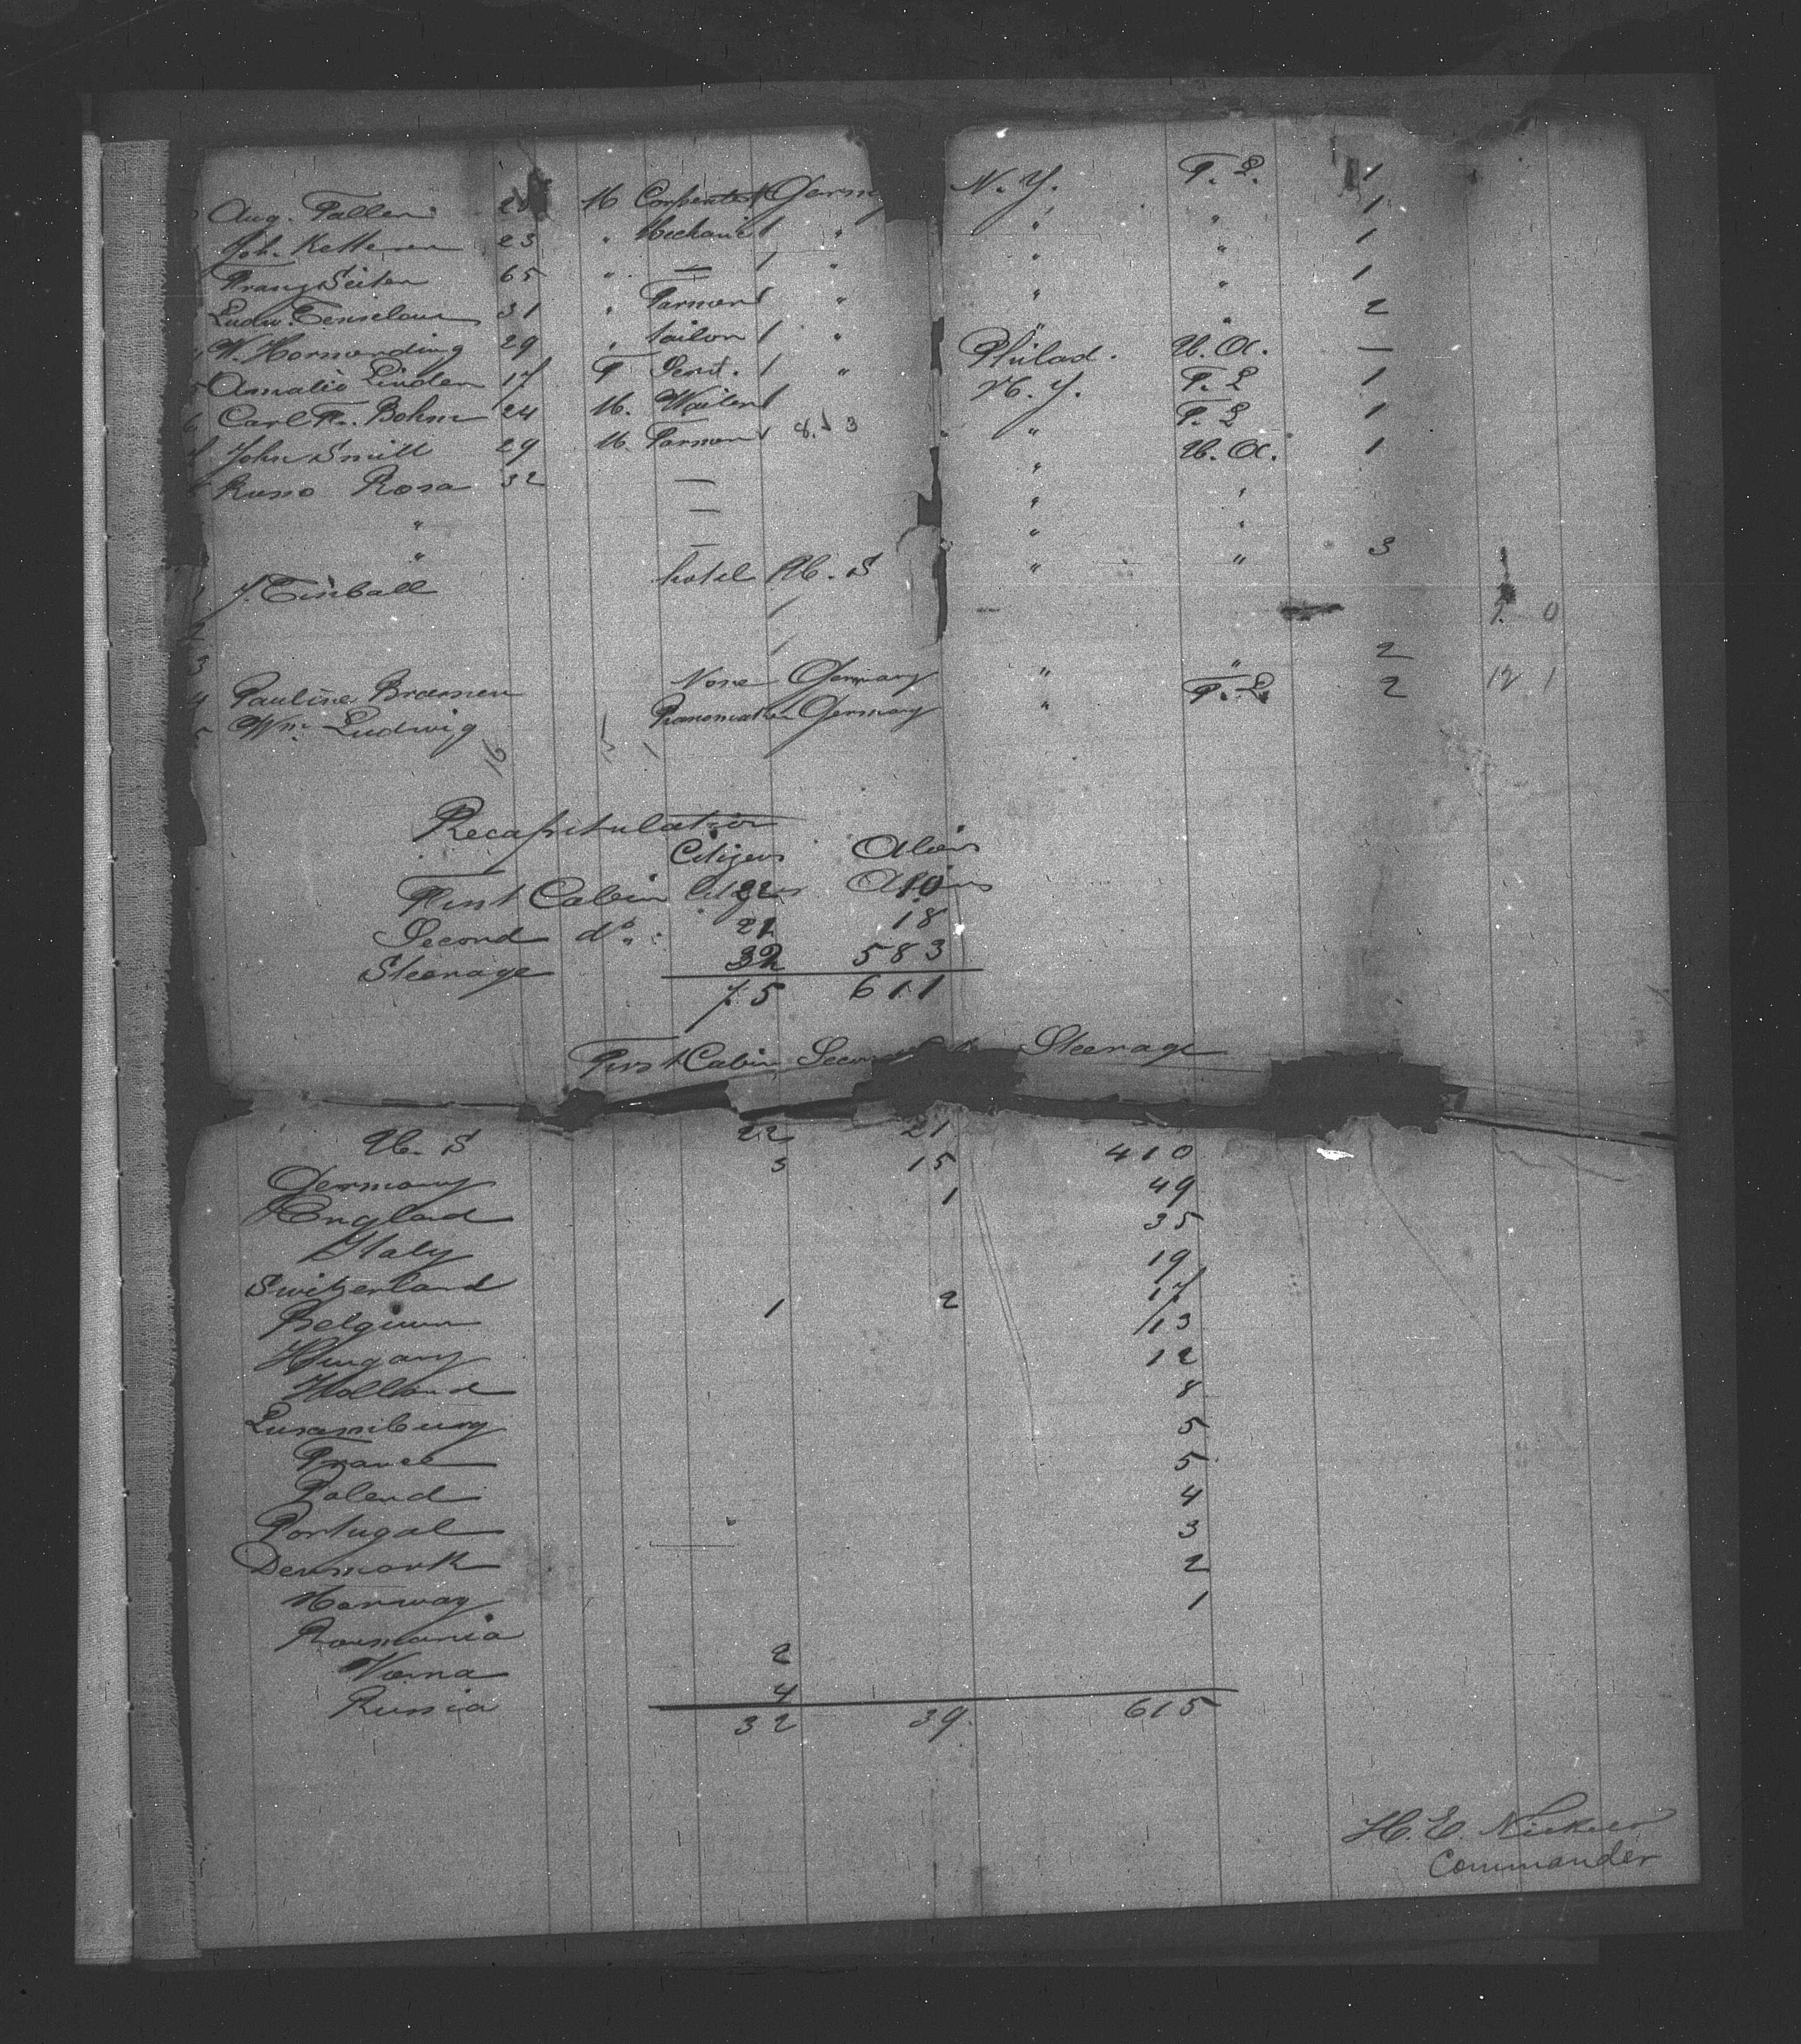 Aug. Faller 2 M Carpenter Germ N. Y. F. L. 1
Joh. Ketterer 23 " Mechanic 1 " " " 1
Franz Seiter 65 " — 1 " " " 1
Ludw. 31 " Farmer 1 " " " 1
W. Hornerding 29 " tailor 1 " " " 2
Amalie Linden 17 F Serv. 1 " Philad. U. A. —
Carl Fr. Bohm 24 M. Waiter 1 N. Y. F. L 1
John Smitt 29 M. Farmer 1 " F. L 1
Russo Rosa 32 — " U. A. 1
" — " "
" — " "
J. hotel U. S " " 3
0
Pauline None Germany " " 2
Wm. Ludwig Pianomaker Germany " F. L. 2 12 1
16
Recapitulation
Citizens Aliens
First Cabin 22 10
Second do. 21 18
Steerage 32 583
75 611
First Cabin Steerage
U. S 22 21
Germany 3 15 410
England 1 49
Italy 35
Switzerland 19
Belgium 1 2 17
Hungary 13
Holland 12
Luxemburg 8
France 5
Poland 5
Portugal 4
Denmark 3
Norway 2
Roumania 1
Varna 2
Russia 4
32 39 615
H. E. Nickels
Commander